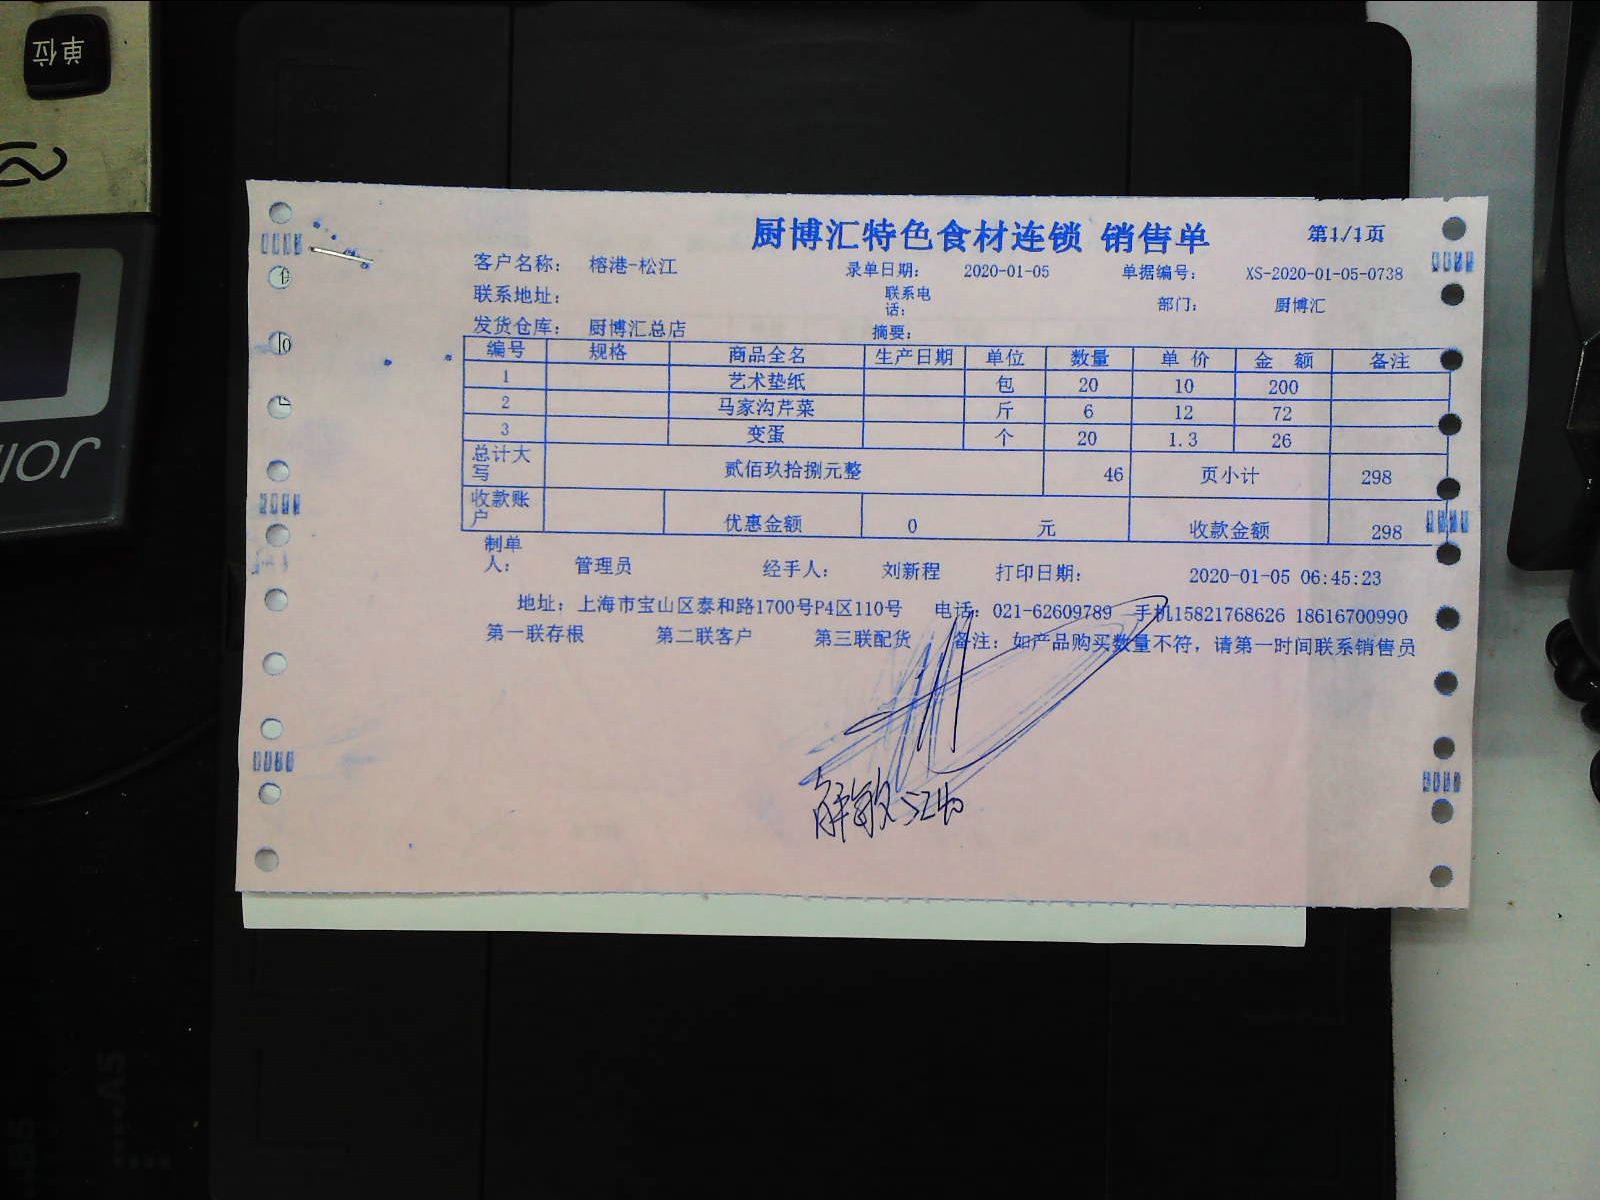 单位
厨博汇特色食材连锁 销售单 第1/1页
客户名称： 榕港-松江 录单日期： 2020-01-05 单据编号： XS-2020-01-05-0738
联系地址： 联系电话： 部门： 厨博汇
发货仓库： 厨博汇总店 摘要：
编号 规格 商品全名 生产日期 单位 数量 单 价 金 额 备注
1 艺术垫纸 包 20 10 200
2 马家沟芹菜 斤 6 12 72
3 变蛋 个 20 1.3 26
总计大写 贰佰玖拾捌元整 46 页小计 298
收款账户 优惠金额 0 元 收款金额 298
制单人： 管理员 经手人： 刘新程 打印日期： 2020-01-05 06:45:23
地址：上海市宝山区泰和路1700号P4区110号 电话：021-62609789 手机15821768626 18616700990
第一联存根 第二联客户 第三联配货 备注：如产品购买数量不符，请第一时间联系销售员